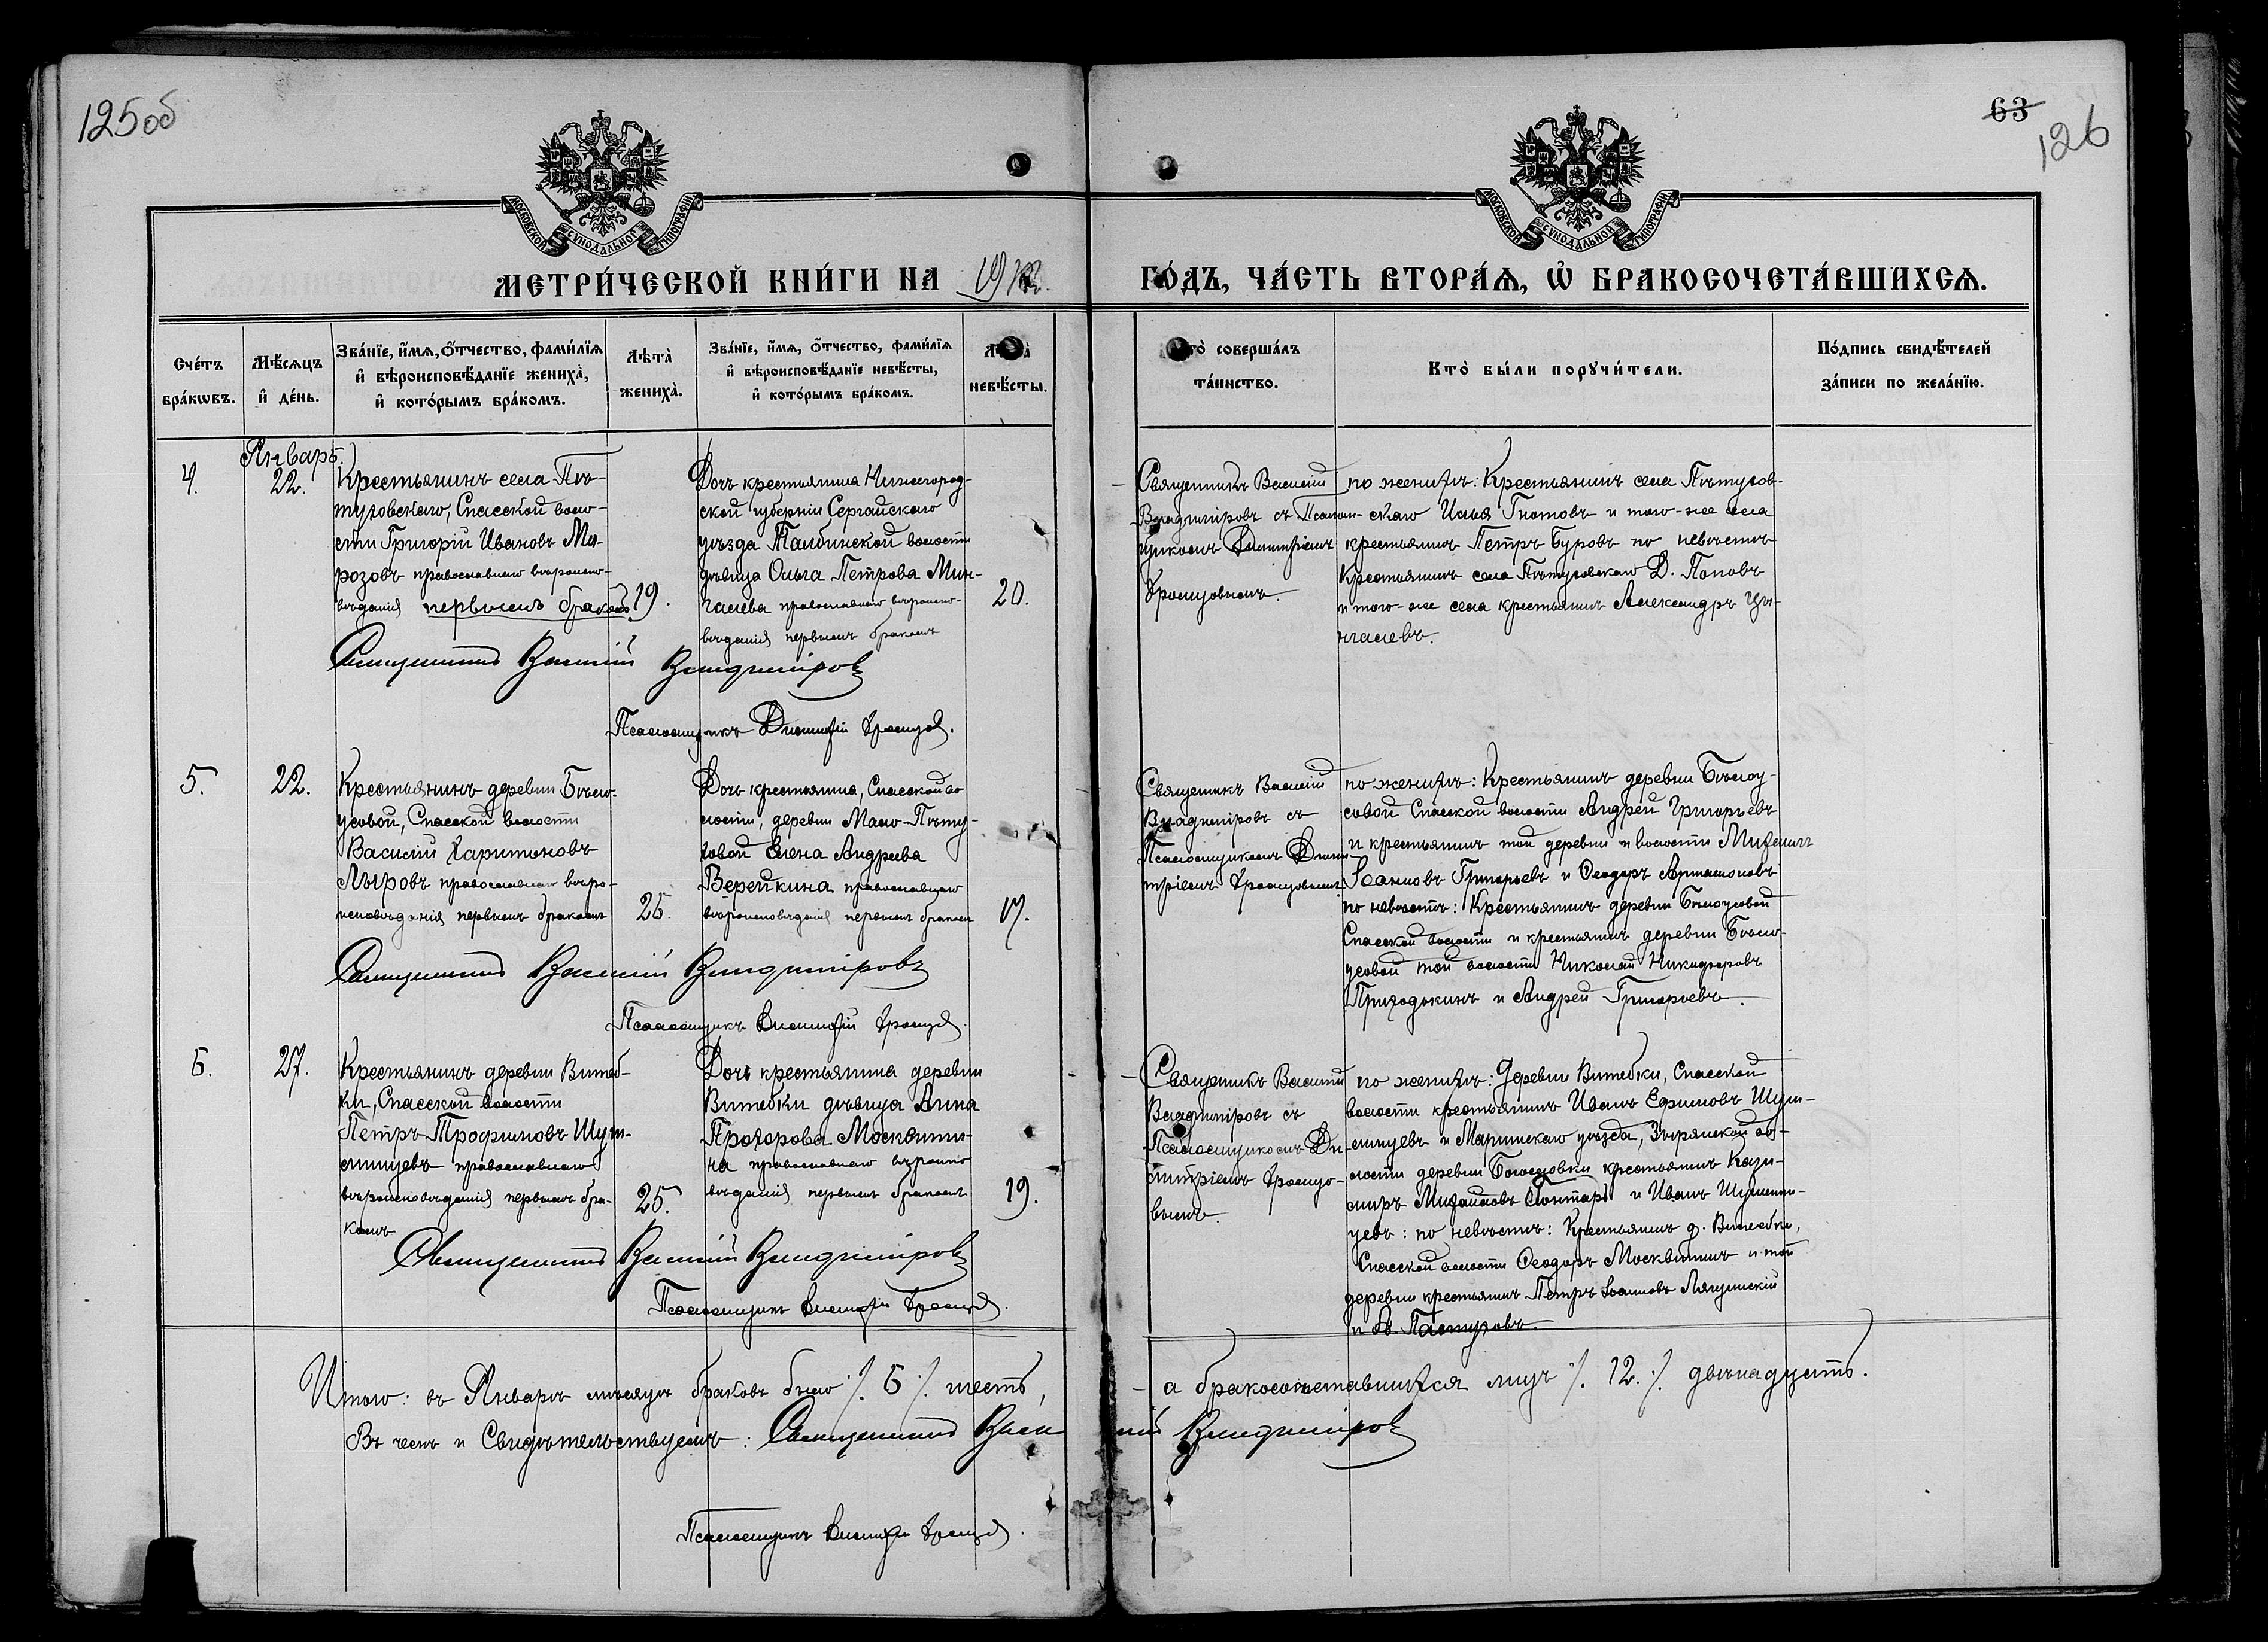 125об
63
126
МОСКОВСКОЙ СѴНОДАЛЬНОЙ ТИПОГРАФІИ
МОСКОВСКОЙ СѴНОДАЛЬНОЙ ТИПОГРАФІИ
МЕТРИ́ЧЕСКОЙ КНИ́ГИ НА 19
ГО́ДЪ, ЧА́СТЬ ВТОРА́Ѧ, Ѡ҆ БРАКОСОЧЕТА́ВШИХСѦ.
Сче́тъ
бра́кѡвъ.
Мѣ́сѧцъ
и҆ де́нь.
Зва́нїе, и҆́мѧ, ѻ҆́тчество, фами́лїѧ
и҆ вѣроисповѣ́данїе жениха̀,
и҆ кото́рымъ бра́комъ.
Лѣта̀
жениха̀.
Зва́нїе, и҆́мѧ, ѻ҆́тчество, фами́лїѧ
и҆ вѣроисповѣ́данїе невѣ́сты,
и҆ кото́рымъ бра́комъ.
невѣ́сты.
совершáлъ
та́инство.
Кто̀ бы́ли порꙋчи́тели.
По́дпись свидѣ́телей
за́писи по жела́нїю.
4.
Январь.
22.
Крестьянинъ села Пѣ-
туховскаго, Спасской воло-
сти Григорій Ивановъ Мо-
розовъ православнаго вѣроиспо-
вѣданія первымъ бракомъ
19.
Дочь крестьянина Нижегород-
ской губерніи Сергачскаго
уѣзда волости
дѣвица Ольга Петрова Мин-
галева православнаго вѣроиспо-
вѣданія первымъ бракомъ
20.
Священникъ Василій
Владиміровъ съ Псалом-
щикомъ Димитріемъ
по женихѣ: Крестьянинъ села Пѣтухов-
скаго Илья и того-же села
крестьянинъ Петръ Буровъ по невѣстѣ
Крестьянинъ села Пѣтуховскаго Д. Поповъ
и того-же села крестьянинъ Александръ
Священникъ Василій Владиміровъ
Псаломщикъ Димитрій
5.
22.
Крестьянинъ деревни Бѣло-
усовой, Спасской волости
Василій Харитоновъ
Лыровъ православнаго вѣро-
исповѣданія первымъ бракомъ
25.
Дочь крестьянина, Спасской во
лости, деревни Мало-Пѣту-
ховой Елена Андреева
Верейкина православнаго
вѣроисповѣданія первымъ бракомъ
17.
Священникъ Василій
Владиміровъ съ
Псаломщикомъ Дими
тріемъ
по женихѣ: Крестьянинъ деревни Бѣлоу-
совой Спасской волости Андрей Григорьевъ
и крестьянинъ той деревни и волости Михаилъ
Іоанновъ Григорьевъ и Ѳеодоръ Артамоновъ
по невѣстѣ: Крестьянинъ деревни Бѣлоусовой
Спасской волости и крестьянинъ деревни Бѣло-
усовой той волости Николай Никифоровъ
Приходькинъ и Андрей Григорьевъ.
Священникъ Василій Владиміровъ
Псаломщикъ Димитрій
6.
27.
Крестьянинъ деревни Витеб-
ки, Спасской волости
Петръ Трофимовъ Шум-
православнаго
вѣроисповѣданія первымъ бра-
комъ
25.
Дочь крестьянина деревни
Витебки дѣвица Анна
Прохорова Москвити-
на православнаго вѣроиспо
вѣданія первымъ бракомъ
19.
Священникъ Василій
Владиміровъ съ
Псаломщикомъ Ди-
митріемъ
по женихѣ: Деревни Витебки, Спасской
волости крестьянинъ Иванъ Ефимовъ
и Маріинскаго уѣзда, Зырянской во-
лости деревни крестьянинъ Кази-
миръ Михайловъ и Иванъ
по невѣстѣ: Крестьянинъ д. Витебки,
Спасской волости Ѳеодоръ Москвитинъ и той
деревни крестьянинъ Петръ Іоанновъ
Пастуховъ.
Священникъ Василій Владиміровъ
Псаломщикъ Димитрій
Итого: въ Январѣ мѣсяцѣ браковъ было ·/. 6 ·/. шесть, а бракосочетавшихся лицъ ·/. 12 ·/. двѣнадцать.
Въ чемъ и Свидѣтельствуемъ: Священникъ Василій Владиміровъ
Псаломщикъ Димитрій